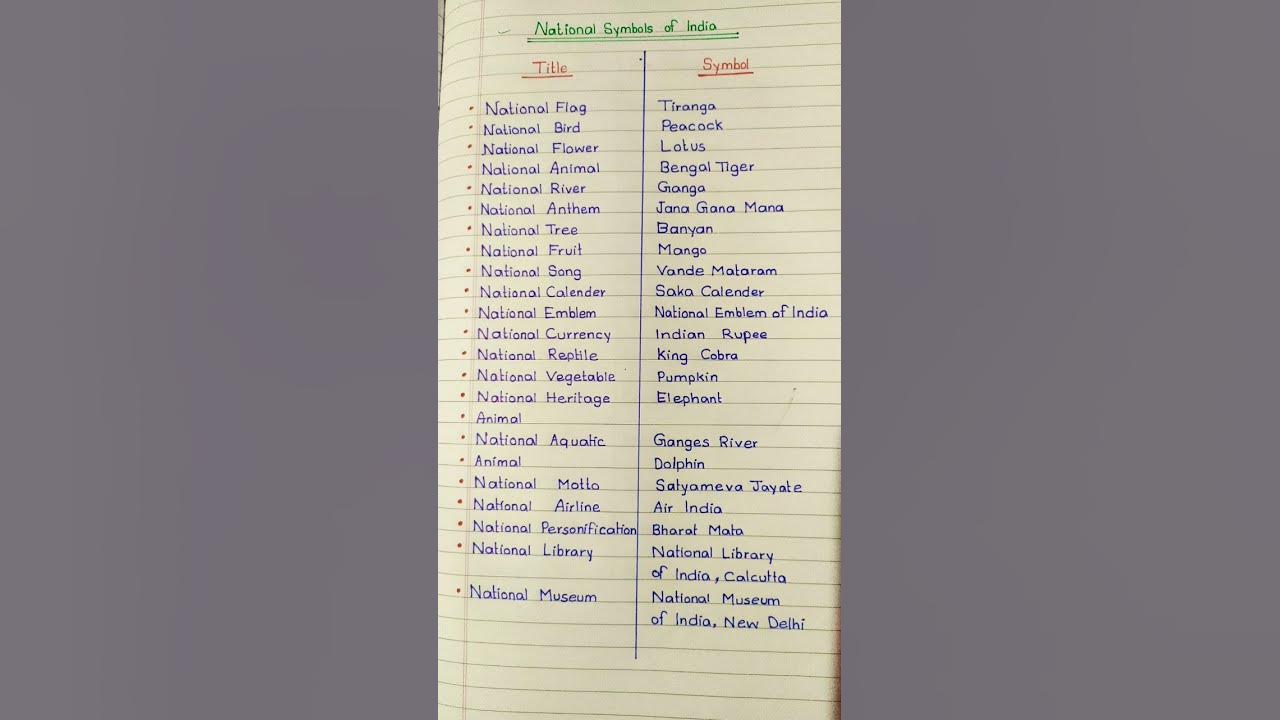 National Symbols of India
Title Symbol
National Flag Tiranga
National Bird Peacock
National Flower Lotus
National Animal Bengal Tiger
National River Ganga
National Anthem Jana Gana Mana
National Tree Banyan
National Fruit Mango
National Song Vande Mataram
National Calender Saka Calender
National Emblem National Emblem of India
National Currency Indian Rupee
National Reptile King Cobra
National Vegetable Pumpkin
National Heritage Elephant
Animal
National Aquatic Ganges River
Animal Dolphin
National Motto Satyameva Jayate
National Airline Air India
National Personification Bharat Mata
National Library National Library
of India, Calcutta
National Museum National Museum
of India, New Delhi